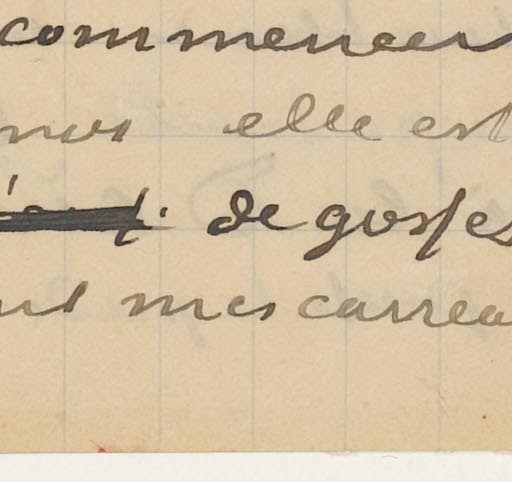 commencer
nos elle est
de gosses
mes carrea